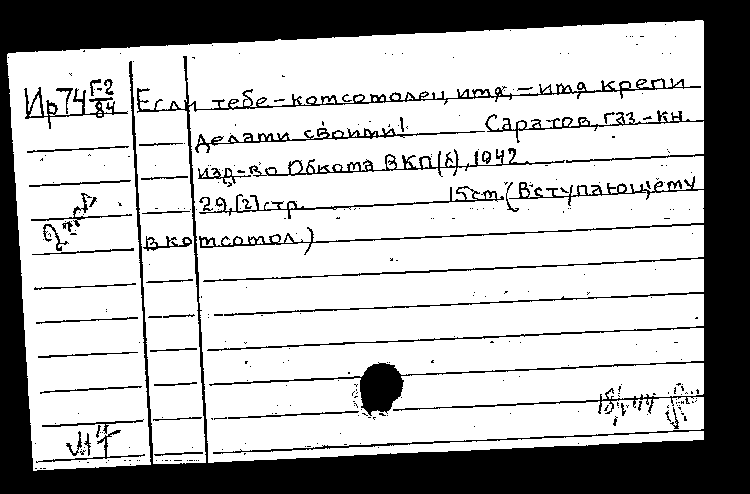 Ир74 Г-2/84 Если тебе - комсомолец, имя, - имя крепи
делами своими! Саратов, газ.-кн.
изд-во Обкома ВКП(б), 1942.
29,[2] стр. 15 см. (Вступающему
в комсомол.)